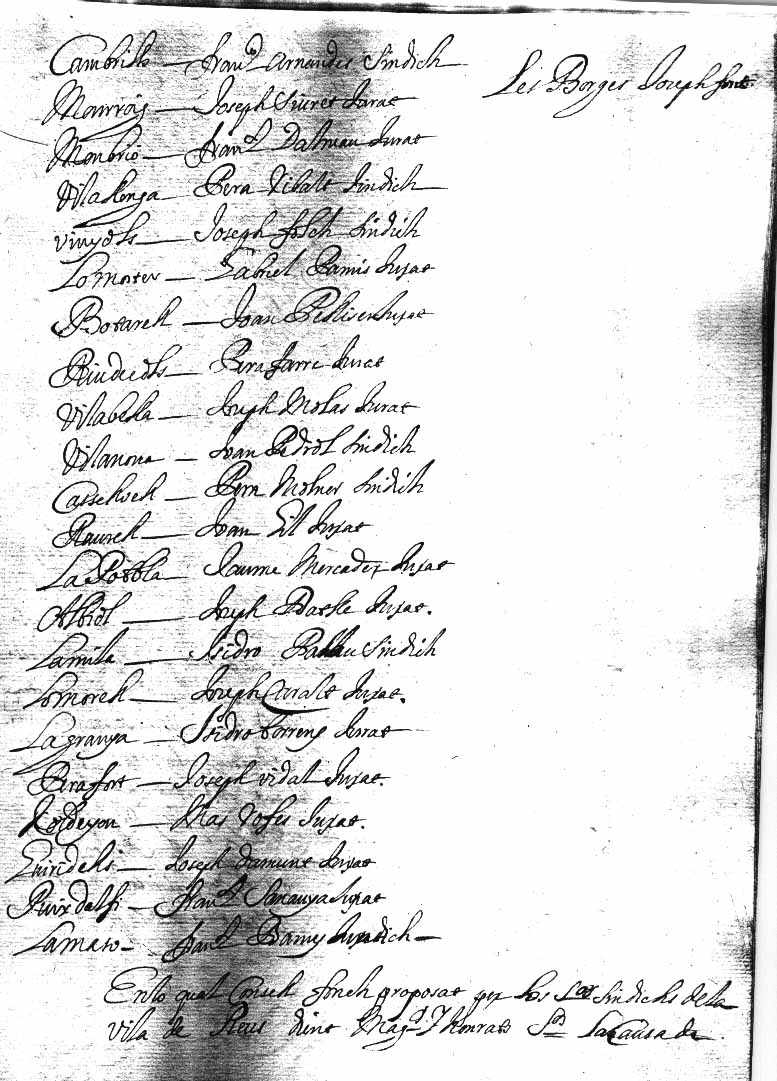 Cambrils — Franc.ch Arnandes Sindich
Les Borges Joseph font.
Maurroig — Joseph Siuret Jurat
Monbrio — Franch Dalmau Jurat
Vilallonga — Pera Vidale Sindich
Vinyols — Joseph folch Sindich
Lo mater — Gabriel Ramis Jurat
Botarell — Joan Pellicer Jurat
Riudecols — Pera farre Jurat
Vilabella — Joseph Molas Jurat
Vilanova — Joan Pedrol Sindich
Castellvell — Pera Molner Sindich
Raurell — Joan Gil Jurat
La Pobbla — Jaume Mercader Jurat
Albiol — Joseph Batlle Jurat.
Lamila — Isidro Sindich
Lo morell — Joseph Jurat.
La granya — Isidro torrens Jurat
Perafort — Joseph vidal Jurat.
Mas Jurat.
Joseph damunt Jurat
Puixdalfi — Franch Jurat
La maso — Sindich —
En lo qual Consell fonch proposat per los S.ors Sindichs de la
Vila de Reus dient Mag.chs y honrats S.ors la Causa de